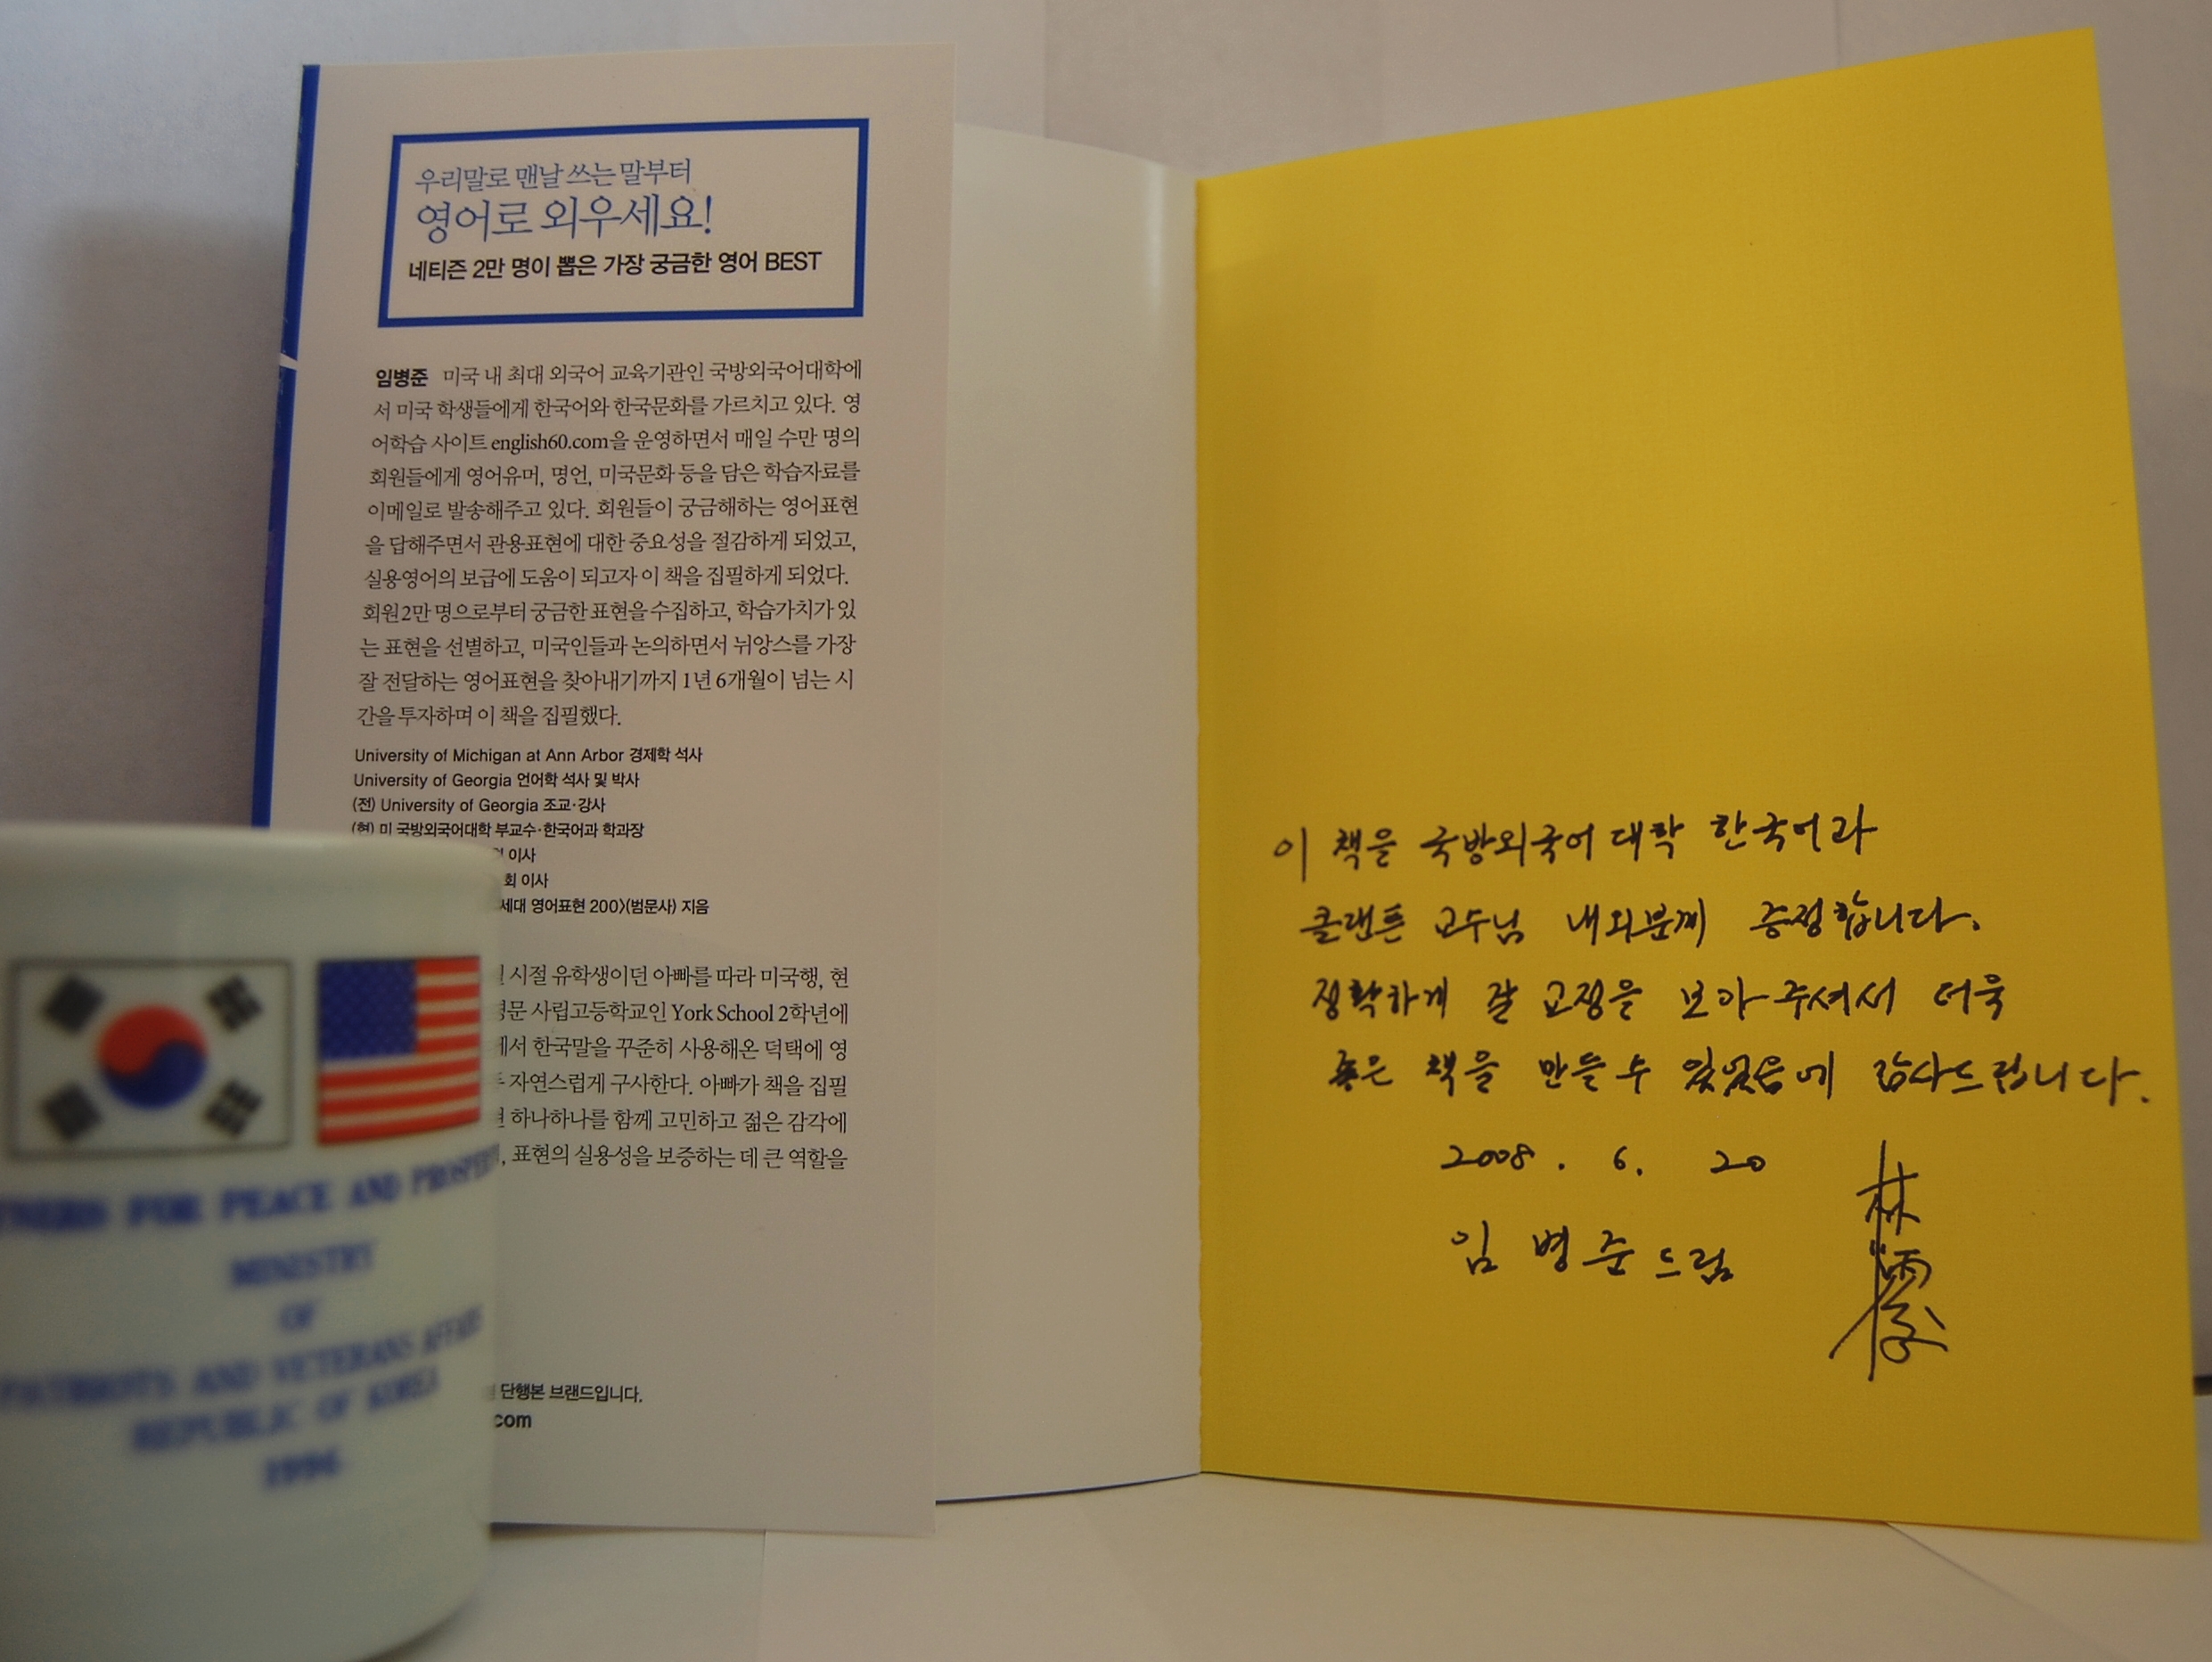 우리말로 맨날 쓰는 말부터
영어로 외우세요!
네티즌 2만 명이 뽑은 가장 궁금한 영어 BEST
임병준 미국 내 최대 외국어 교육기관인 국방외국어대학에
서 미국 학생들에게 한국어와 한국문화를 가르치고 있다. 영
어학습 사이트 english60.com을 운영하면서 매일 수만 명의
회원들에게 영어유머, 명언, 미국문화 등을 담은 학습자료를
이메일로 발송해주고 있다. 회원들이 궁금해하는 영어표현
을 답해주면서 관용표현에 대한 중요성을 절감하게 되었고,
실용영어의 보급에 도움이 되고자 이 책을 집필하게 되었다.
회원2만 명으로부터 궁금한 표현을 수집하고, 학습가치가 있
는 표현을 선별하고, 미국인들과 논의하면서 뉘앙스를 가장
잘 전달하는 영어표현을 찾아내기까지 1년 6개월이 넘는 시
간을 투자하며 이 책을 집필했다.
University of Michigan at Ann Arbor 경제학 석사
University of Georgia 언어학 석사 및 박사
(전) University of Georgia 조교·강사
(현) 미 국방외국어대학 부교수·한국어과 학과장
이사
회 이사
세대 영어표현 200>(범문사) 지음
시절 유학생이던 아빠를 따라 미국행, 현
명문 사립고등학교인 York School 2학년에
에서 한국말을 꾸준히 사용해온 덕택에 영
자연스럽게 구사한다. 아빠가 책을 집필
하나하나를 함께 고민하고 젊은 감각에
, 표현의 실용성을 보증하는 데 큰 역할을
단행본 브랜드입니다.
.com
FOR PEACE AND
MINISTRY
OF
PATRIOTS AND VETERANS AFFAIRS
REPUBLIC OF KOREA
1996
이 책을 국방외국어 대학 한국어과
클랜튼 교수님 내외분께 증정합니다.
정확하게 잘 교정을 보아 주셔서 더욱
좋은 책을 만들 수 있었음에 감사드립니다.
2008. 6. 20
임 병 준 드림
林